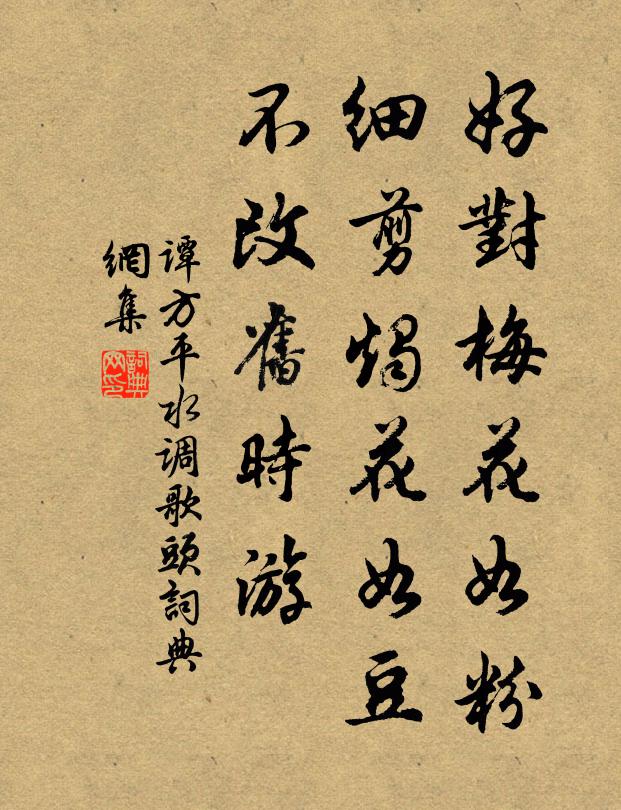 好對梅花如粉
細剪燭花如豆
不改舊時游
譚方平水调歌頭詞典
網集
詞典網印